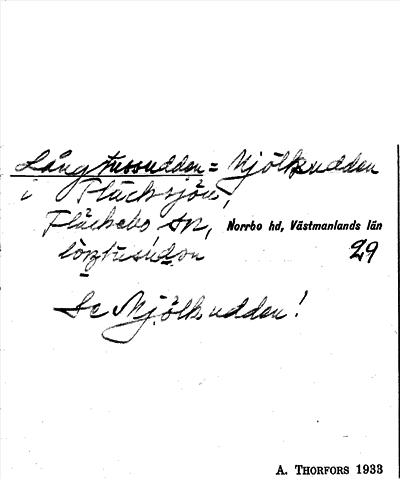 Långtussudden = Mjölkudden
i Fläcksjön,
Fläckebo sn, Norrbo hd, Västmanlands län
lòŋtusùdon 29
Se Mjölkudden!
A. THORFORS 1933